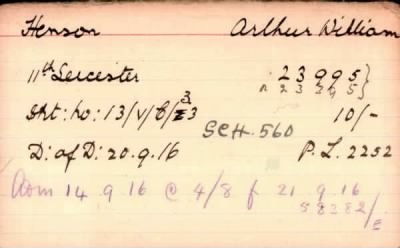 Henson Arthur William
11th Leicester 23995}
n 23395}
Sht: No: 13/V/6/3 3 10/-
SCH. 560
D: of D: 20.9.16 P.L. 2252
Aom 14 9 16 @ 4/8 f 21 9 16
58382/E